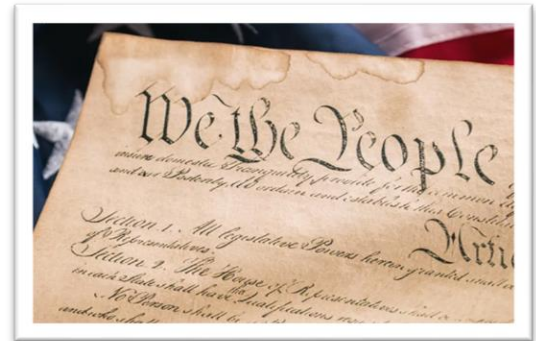 We the People
insure domestic Tranquility, provide for the common
and our Posterity, do ordain and establish this Constitu
Artic
Section. 1. All legislative Powers herein granted shall
of Representatives.
Section. 2. The House of Representatives shall
in each State shall have the Qualifications
No Person shall be
and who shall